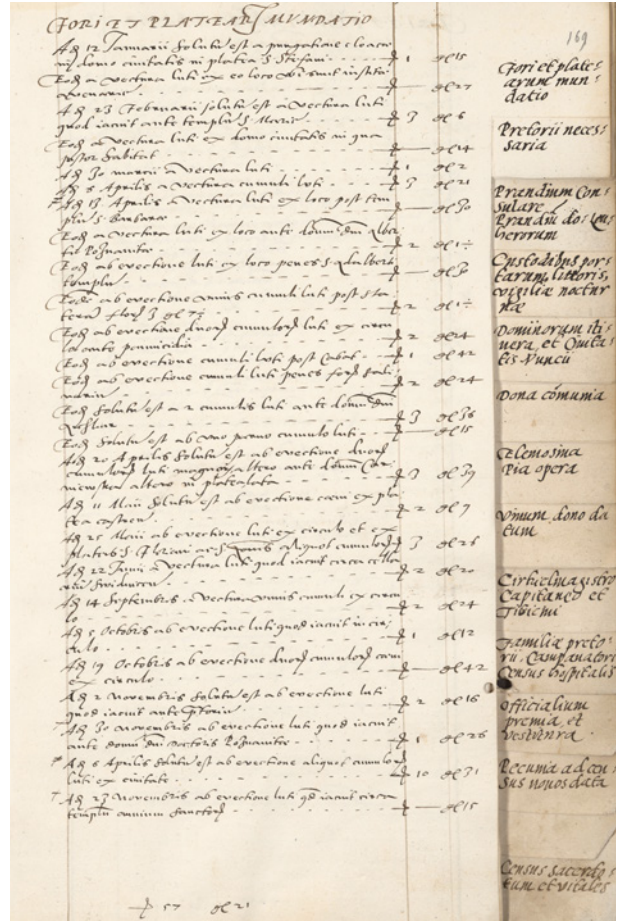 FORI ET PLATEARŪ MUNDATIO
169
Ad 12 Januarii solutu est a purgatione cloacæ
in domo civitatis in platea S Stefani - - - ƒ 1 gl 15
Eod a vectura luti ex eo loco ubi sunt institæ
- - - gl 27
Ad 23 Februarii solutu est a vectura luti
quod iacuit ante templu S Mariæ - - - ƒ 3 gl 6
Eod a vectura luti ex domo civitatis in qua
pastor habitat - - - gl 14
Ad 30 martii a vectura luti - - - ƒ 1 gl 2
Ad 8 Aprilis a vectura cumuli luti - - - ƒ 3 gl 21
Ad 13 Aprilis a vectura luti ex loco post tem
plu S Barbaræ - - - gl 30
Eod a vectura luti ex loco ante domu dni Alber
ti Poznanitæ - - - ƒ 2
Eod ab evectione luti ex loco penes S Adalberti
templu - - - gl 30
Eode ab evectione unius cumuli luti post sta
- - - ƒ 2
Eod ab evectione duoru cumuloru luti ex circu
lo ante pennicidia - - - ƒ 2 gl 24
Eod ab evectione cumuli luti post - - - ƒ 1 gl 42
Eod ab evectione cumuli luti penes foru sali
nariu - - - ƒ 2 gl 24
Eod solutu est a 2 cumulis luti ante domu dni
- - - ƒ 3 gl 36
Eod solutu est ab uno parvo cumulo luti - - gl 15
Ad 20 Aprilis solutu est ab evectione duoru
cumuloru luti magnoru altero ante domu
altero in platea lata - - - ƒ 3 gl 39
Ad 11 Maii solutu est ab evectione cœni ex pla
tea castren - - - ƒ 2 gl 9
Ad 25 Maii ab evectione luti ex circulo et ex
plateis S Floriani ac S aliquot cumuloru ƒ 3 gl 26
Ad 22 Junii a vectura luti quod iacuit circa cella
riu Swidnicen - - - ƒ 2 gl 20
Ad 14 Septembris a vectura unius cumuli ex circu
lo - - - ƒ 2 gl 24
Ad 5 Octobris ab evectione luti quod iacuit in cir
culo - - - ƒ 1 gl 12
Ad 19 Octobris ab evectione duoru cumuloru cœni
ex circulo - - - gl 42
Ad 2 Novembris solutu est ab evectione luti
quod iacuit ante ptoriu - - - ƒ 2 gl 16
Ad 30 novembris ab evectione luti quod iacuit
ante domu dni doctoris Poznanitæ - - ƒ 1 gl 26
Ad 6 Aprilis solutu est ab evectione aliquot cumuloru
luti ex civitate - - - ƒ 10 gl 31
Ad 23 Novembris ab evectione luti qd iacuit circa
templu omnium sanctoru - - - gl 15
ƒ 57 gl 21
Fori et plate
arum mun
datio
Pretorii neces
saria
Prandium Con
sulare
Prandiu
Custodibus por
tarum, littoris,
vigiliæ noctur
næ
Dominorum iti
nera, et Civita
tis Nuncii
Dona comunia
Elemosina
Pia opera
Vinum dono da
tum
Cirkielmagistro
Capitaneo et
Tibicini
Familiæ preto
rii, Campanatori
Census hospitalis
Officialium
premia et
vestitura
Pecunia ad cen
sus novos data
Census sacerdo
tum et vitales